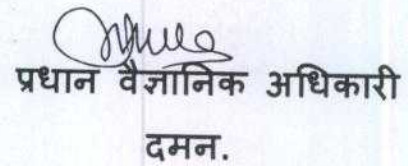 प्रधान वैज्ञानिक अधिकारी
दमन.